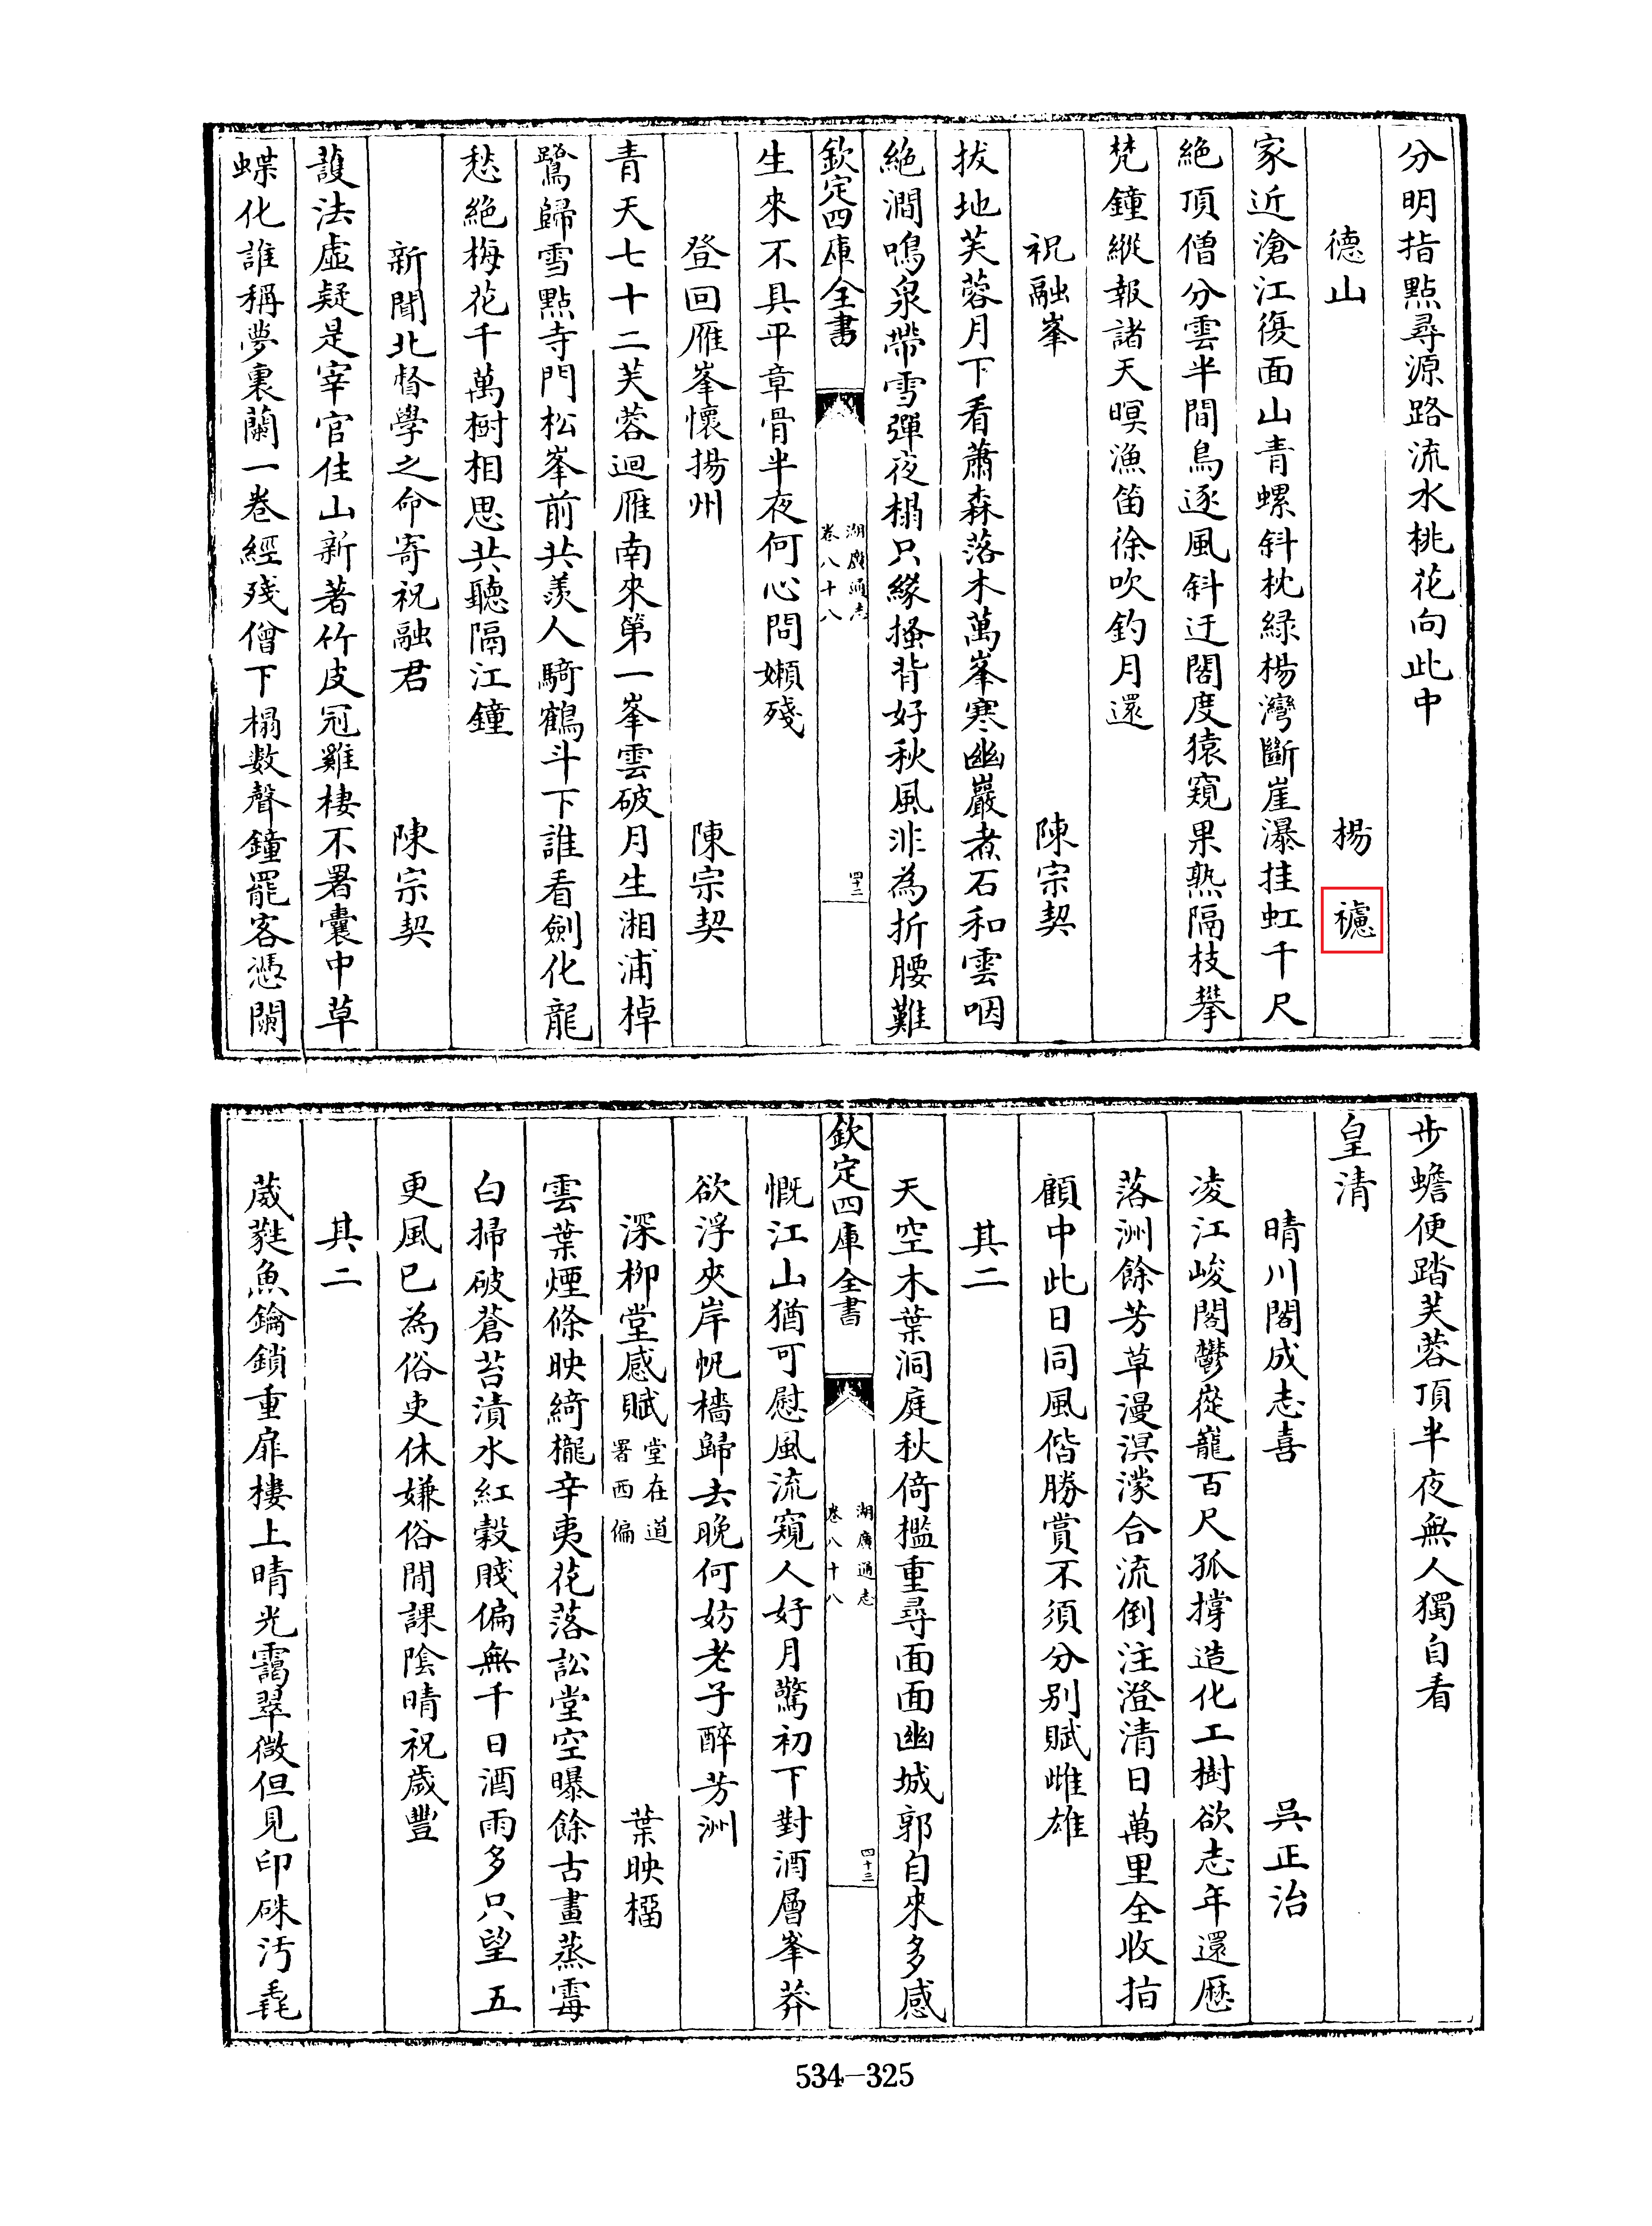 分明指點尋源路流水桃花向此中
德山 楊
家近滄江復面山青螺斜枕綠楊灣斷崖瀑挂虹千尺
絶頂僧分雲半間鳥逐風斜迂閣度猿窺果熟隔枝攀
梵鐘縱報諸天暝漁笛徐吹釣月還
祝融峯 陳宗契
拔地芙蓉月下看蕭森落木萬峯寒幽巖煮石和雲咽
絶澗鳴泉帶雪彈夜榻只緣搔背好秋風非為折腰難
欽定四庫全書
湖廣通志
卷八十八
四十二
生來不具平章骨半夜何心問嬾殘
登回雁峯懷揚州 陳宗契
青天七十二芙蓉迴雁南來第一峯雲破月生湘浦棹
鷺歸雪點寺門松峯前共羨人騎鶴斗下誰看劍化龍
愁絶梅花千萬樹相思共聽隔江鐘
新聞北督學之命寄祝融君 陳宗契
護法虛疑是宰官住山新著竹皮冠雞棲不署囊中草
蝶化誰稱夢裏蘭一卷經殘僧下榻数聲鐘罷客憑闌
步蟾便踏芙蓉頂半夜無人獨自看
皇清
晴川閣成志喜 吳正治
凌江峻閣鬱嵸巃百尺孤撐造化工樹欲志年還歴
落洲餘芳草漫溟濛合流倒注澄清日萬里全收指
顧中此日同風偕勝賞不須分別賦雌雄
其二
天空木葉洞庭秋倚檻重尋面面幽城郭自來多感
欽定四庫全書
湖廣通志
卷八十八
四十三
慨江山猶可慰風流窺人好月驚初下對酒層峯莽
欲浮夾岸帆檣歸去晚何妨老子醉芳洲
深柳堂感賦 堂在道署西偏 葉映榴
雲葉煙條映綺櫳辛夷花落訟堂空曝餘古畫蒸霉
白掃破蒼苔漬水紅穀賤偏無千日酒雨多只望五
更風已為俗吏休嫌俗閒課陰晴祝歲豐
其二
葳蕤魚鑰鎖重扉樓上晴光靄翠微但見印硃汚毳
534-325